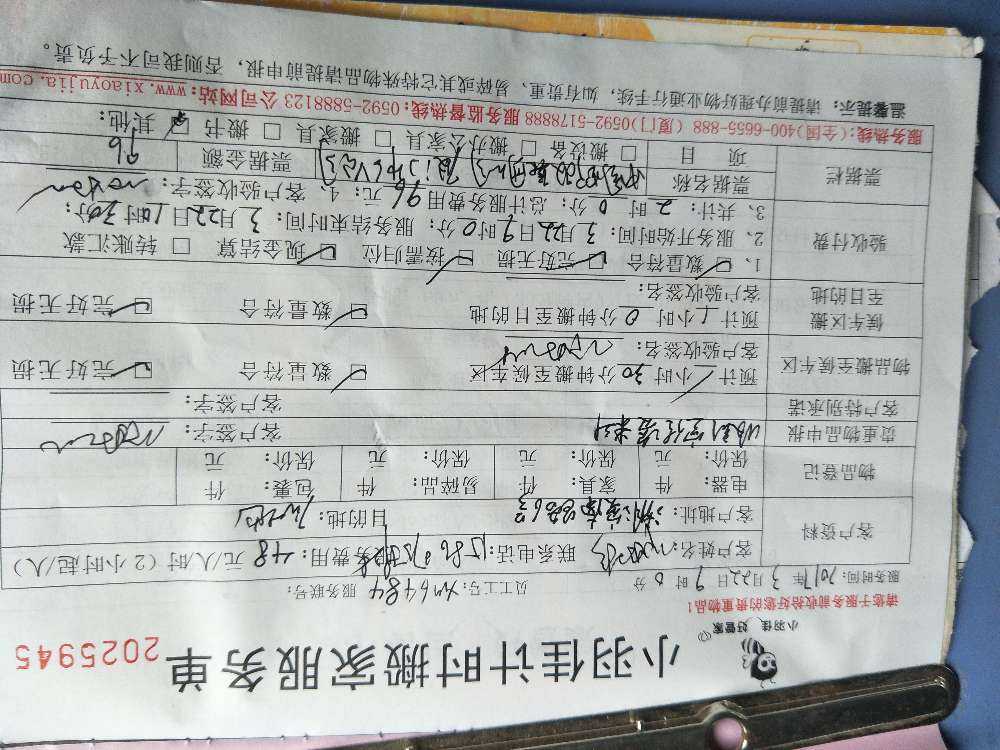 小羽佳 好管家
小羽佳计时搬家服务单 2025945
请您于服务前收拾好您的贵重物品！
服务时间：2017年3月22日9时0分 员工工号：xm6484 服务联号：
客户资料
客户姓名： 联系电话： 服务费用：48元/人/时（2小时起/人）
客户地址： 目的地：
物品登记
电器： 件 家具： 件 易碎品： 件 包裹： 件
保价： 元 保价： 元 保价： 元 保价： 元
贵重物品申报 客户签字：
客户特别承诺 客户签字：
物品搬至候车区
预计 小时30分钟搬至候车区 数量符合 完好无损
客户验收签名：
候车区搬至目的地
预计1小时0分钟搬至目的地 数量符合 完好无损
客户验收签名：
验收付费
1、数量符合 完好无损 按需归位 现金结算 转账汇款
2、服务开始时间：3月22日9时0分；服务结束时间：3月22日10时30分；
3、共计：2时0分；总计服务费用96元；4、客户验收签字：
票据栏
票据名称 票据金额 96
项目 搬设备 搬办公家具 搬家具 搬书 其他：
服务热线：(全国)400-6655-888 (厦门)0592-5178888 服务监督热线：0592-5888123 公司网站：www.xiaoyujia.com
温馨提示：请提前办理好物业通行手续，如有贵重、易碎或其它特殊物品请提前申报，否则我司不予负责。